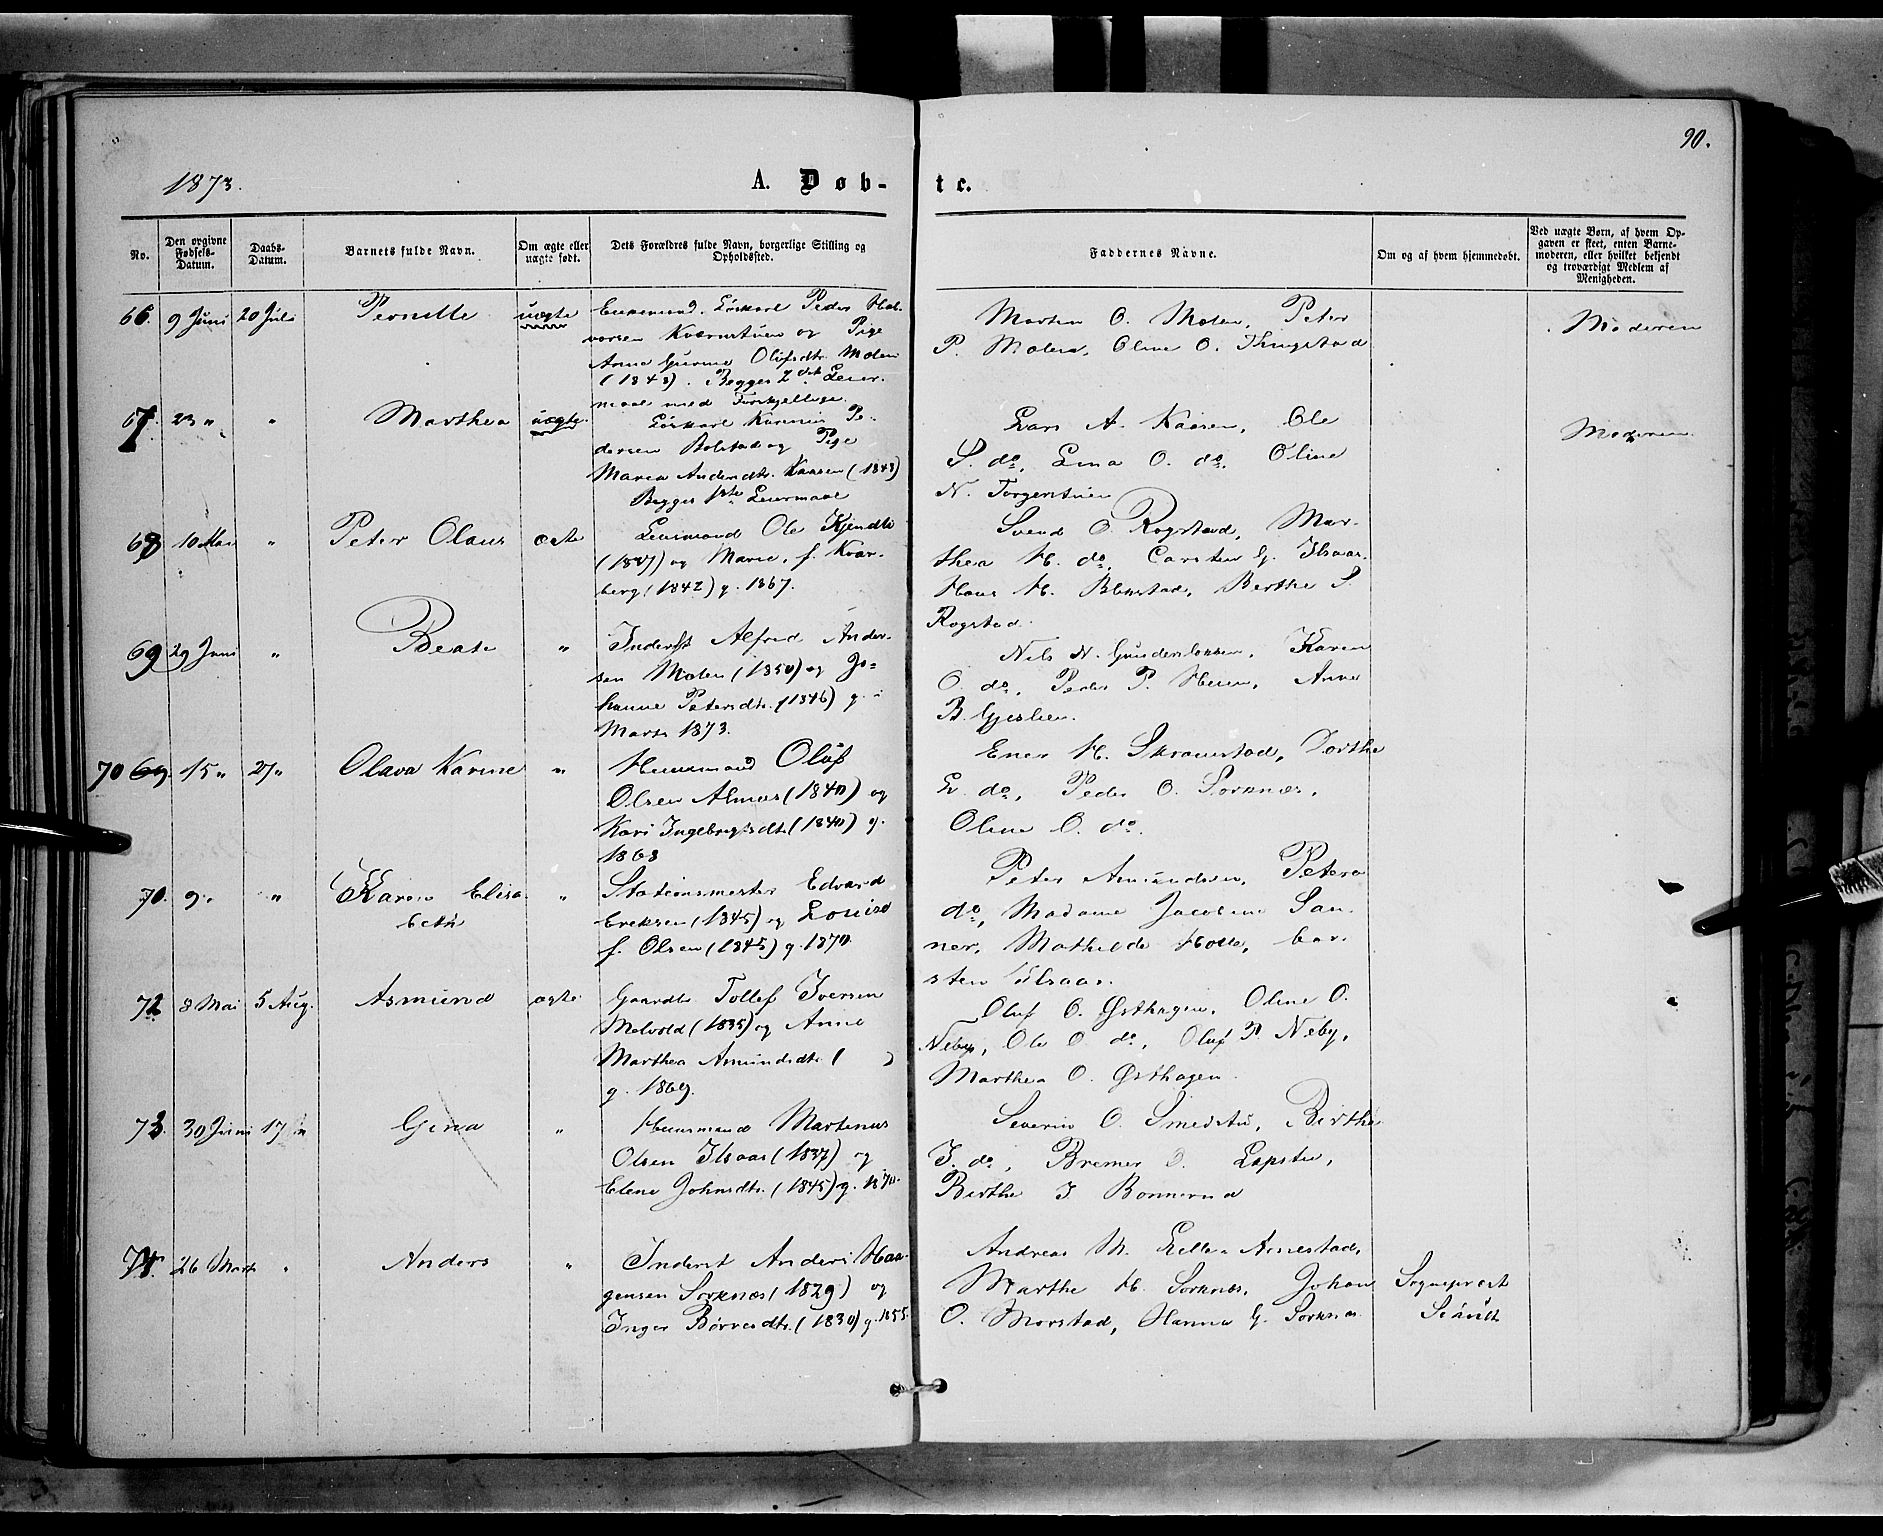 90.
1873.
A. Døb-
te.
No.
Den opgivne Fødsels-Datum.
Daabs-Datum.
Barnets fulde Navn.
Om ægte eller uægte født.
Dets Forældres fulde Navn, borgerlige Stilling og Opholdssted.
Faddernes Navne.
Om og af hvem hjemmedøbt.
Ved uægte Børn, af hvem Opgaven er skeet, enten Barnemoderen, eller hvilket bekjendt og troværdigt Medlem af Menigheden.
66. 9 Juni 20 Juli Pernille uægte
Løskarl Peder Hal-
vorsen Kværnstuen og Pige
Anne Gurine Olufsdtr. Molen
(1848). Begges 2det Leier-
maal med Forskjellige.
Morten O. Molen, Peter
P. Molen, Oline O. Kingstad
Moderen
67. 23 " " Marthea uægte
Løskarl Pe-
dersen Bolstad og Pige
Maren Andersdtr. Kaasen (1848)
Begges 1ste Leiermaal
Lars A. Kaasen, Ole
S. do, Lina O. do, Oline
N. Torgerstuen
Moderen
68 10 Mai " Peter Olaus ægte
Leiermand Ole Kjendli
(1847) og Marie, f. Kvar-
berg (1842) g. 1867.
Svend O. Rogstad, Mar-
thea H. do, Carsten G. Ilsaas
Hans H. Blikstad, Berthe S.
Rogstad.
69 29 Juni " Beate "
Inderst Alfred Ander-
sen Molen (1850) og Jo-
hanne Petersdtr. (1846) g. i
Marts 1873.
Nils N. Gunderløkken, Karen
O. do, Peder P. Heien, Anne
B. Gjeslien.
70 69. 15 " 27 " Olava Karine "
Huusmand Oluf
Olsen Alnæs (1840) og
Kari Ingebrigtsdtr. (1840) g.
1868
Ener H. Skramstad, Dorthe
E. do, Peder O. Sorknæs,
Oline O. do.
70. 9 " " Karen Elisa-
beth "
Stationsmester Edvard
Ericksen (1845) og Louise
f. Olsen (1845) g. 1870.
Peter Amundsen, Petera
do, Madame Jacobine San-
ner, Mathilde Holte, Car-
sten Ilsaas.
72 8 Mai 5 Aug. Asmund ægte
Gaardbr. Tollef Iversen
Melvold (1835) og Anne
Marthea Amundsdtr. ( )
g. 1869.
Oluf O. Østhagen, Oline O.
Neby, Ole O do, Oluf P. Neby,
Marthea O. Østhagen.
73. 30 Juni 17 " Gina "
Huusmand Martinus
Olsen Ilsaas (1837) og
Elene Johnsdtr. (1845) g. 1870.
Severin O. Smedstu, Birthe
J. do, Bremer O. Lapstu,
Birthe J Bonnerud
74. 26 Marts " Anders "
Inderst Anders Haa-
gensen Sorknæs (1829) og
Inger Børresdtr. (1830) g. 1855.
Andreas M. Lille-Arnestad,
Marthe H. Sorknæs, Johan
O. Morstad, Hanna G. Sorknæs
Sogneprest